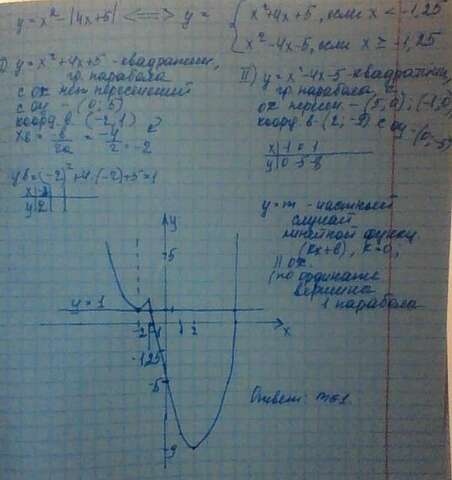 y = x² - |4x+5| <=> y = { x²+4x+5, если x < -1,25
x²-4x-5, если x ≥ -1,25
I) y = x²+4x+5 - квадратичн,
гр. парабола
с ox нет пересечений
с oy - (0; 5)
коорд. в (-2; 1)
xв = -в/2a = -4/2 = -2
yв = (-2)²+4·(-2)+5=1
x
y 2
II) y = x²-4x-5 - квадратичн,
гр. парабола,
ox перес. - (5; 0); (-1; 0)
коорд в - (2; -9) с oy - (0; -5)
x -1 0 1
y 0 -5 -8
y = m - частный
случай
линейной функц
(kx+b), k=0,
|| ox.
(по ординате
вершина
1 парабола
y
5
y = 1
1
-2 -1 1 2 x
-1,25
-5
-9
Ответ: m=1.